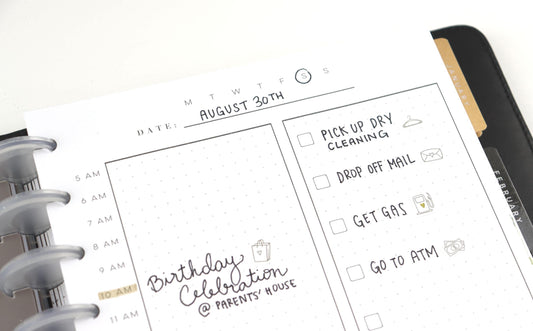 M T W T F S S
DATE: AUGUST 30TH
5 AM
6 AM
7 AM
8 AM
9 AM
10 AM
11 AM
Birthday
Celebration
@ PARENTS' HOUSE
PICK UP DRY
CLEANING
DROP OFF MAIL
GET GAS
GO TO ATM
JANUARY
FEBRUARY